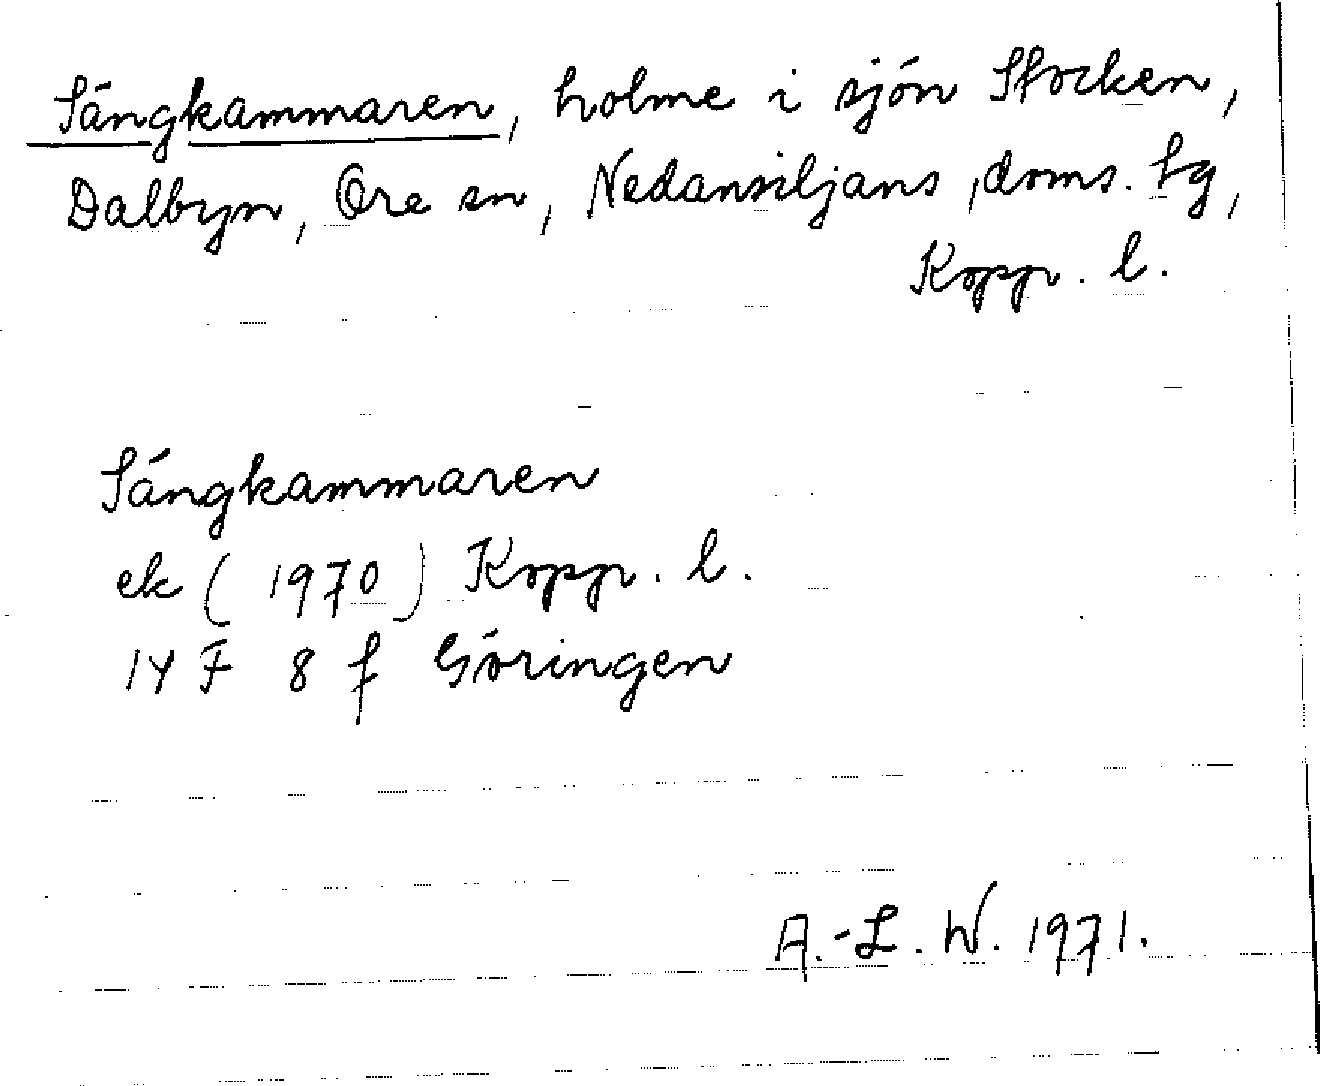 Sängkammaren, holme i sjön Skocken,
Dalbyn, Ore sn, Nedansiljans, doms. tg,
Kopp. l.
Sängkammaren
ek (1970) Kopp. l.
14 F 8 f Göringen
A.-L. W. 1971.